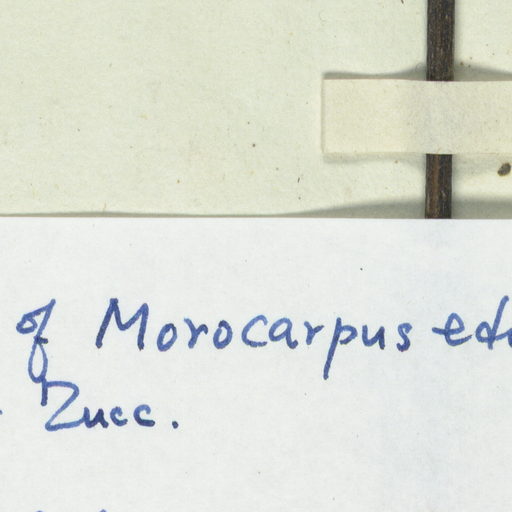 of Morocarpus
Zucc.